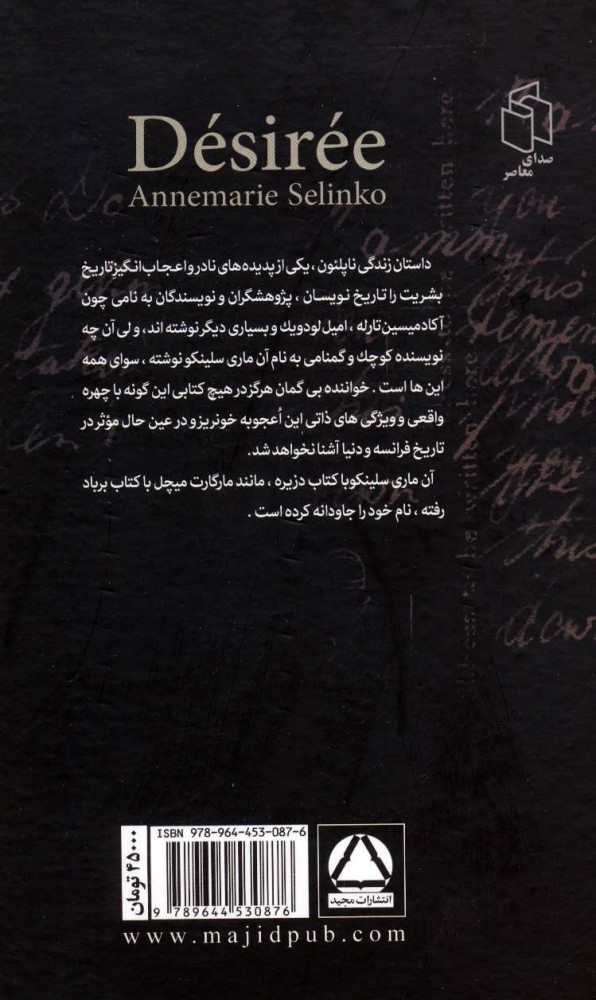 Désirée
Annemarie Selinko
صدای
معاصر
داستان زندگی ناپلئون ، یکی از پدیده‌های نادر و اعجاب انگیز تاریخ
بشریت را تاریخ نویسان ، پژوهشگران و نویسندگان به نامی چون
آکادمیسین تارله ، امیل لودویك و بسیاری دیگر نوشته اند، و لی آن چه
نویسنده کوچك و گمنامی به نام آن ماری سلینکو نوشته ، سوای همه
این ها است . خواننده بی گمان هرگز در هیچ کتابی این گونه با چهره
واقعی و ویژگی های ذاتی این اُعجوبه خونریز و در عین حال مؤثر در
تاریخ فرانسه و دنیا آشنا نخواهد شد.
آن ماری سلینکو با کتاب دزیره ، مانند مارگارت میچل با کتاب برباد
رفته ، نام خود را جاودانه کرده است .
ISBN 978-964-453-087-6
9 789644 530876
۴۵۰۰۰ تومان
انتشارات مجید
www.majidpub.com